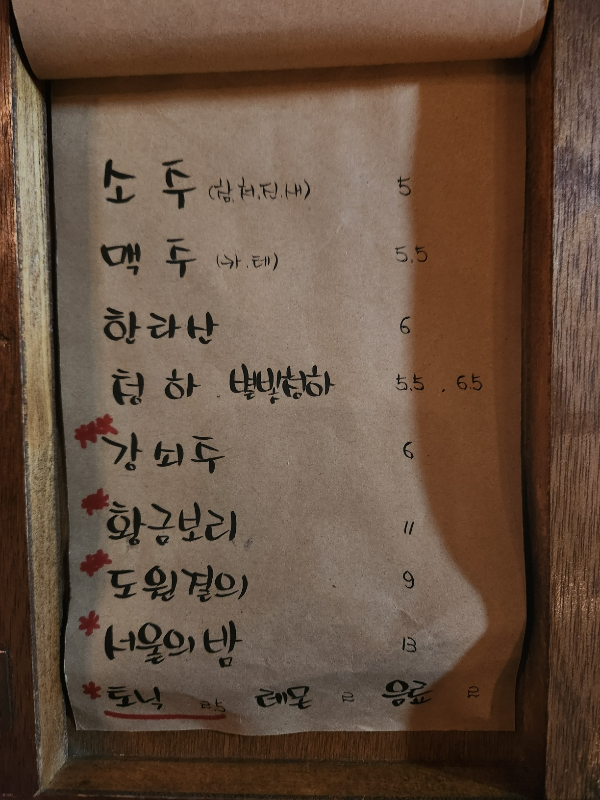 소주 (참.처.진.새) 5
맥주 (카.테) 5.5
한라산 6
청하 별빛청하 5.5 . 6.5
강쇠주 6
황금보리 11
도원결의 9
서울의밤 13
토닉 2.5 레몬 2 음료 2